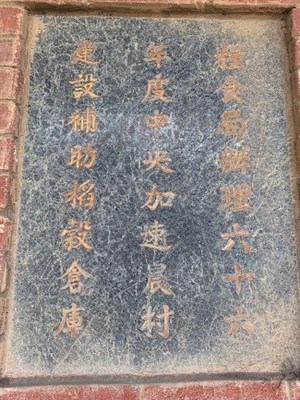 糧食局辦理六十六
年度中央加速農村
建設補助稻穀倉庫